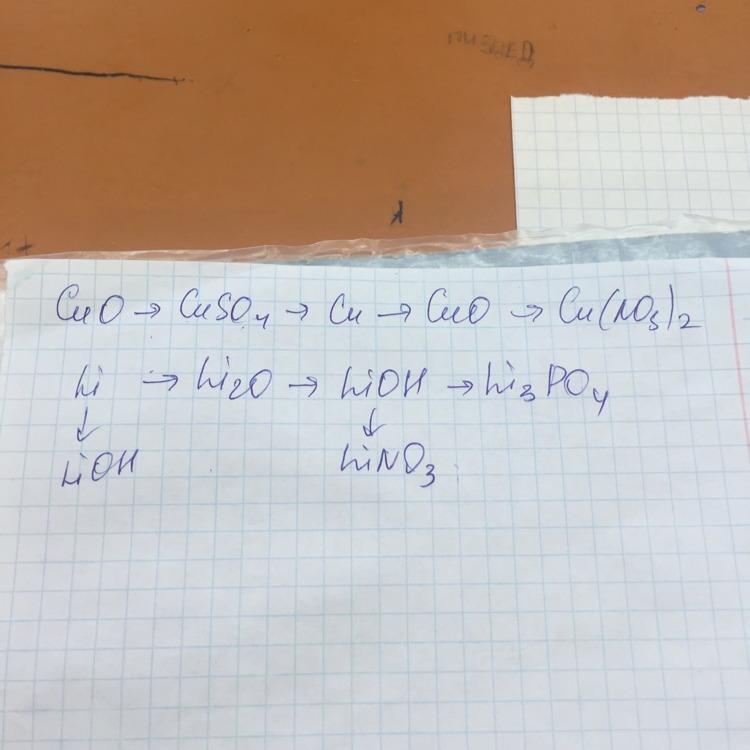 CuO → CuSO4 → Cu → CuO → Cu(NO3)2
Li → Li2O → LiOH → Li3PO4
↓ ↓
LiOH LiNO3